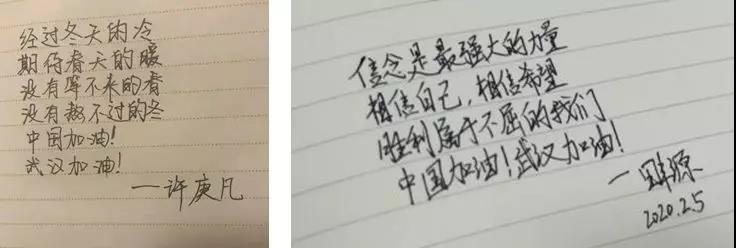 经过冬天的冷
期待春天的暖
没有等不来的春
没有熬不过的冬
中国加油!
武汉加油!
—许庚凡
信念是最强大的力量
相信自己,相信希望
胜利属于不屈的我们
中国加油!武汉加油!
—田源
2020.2.5